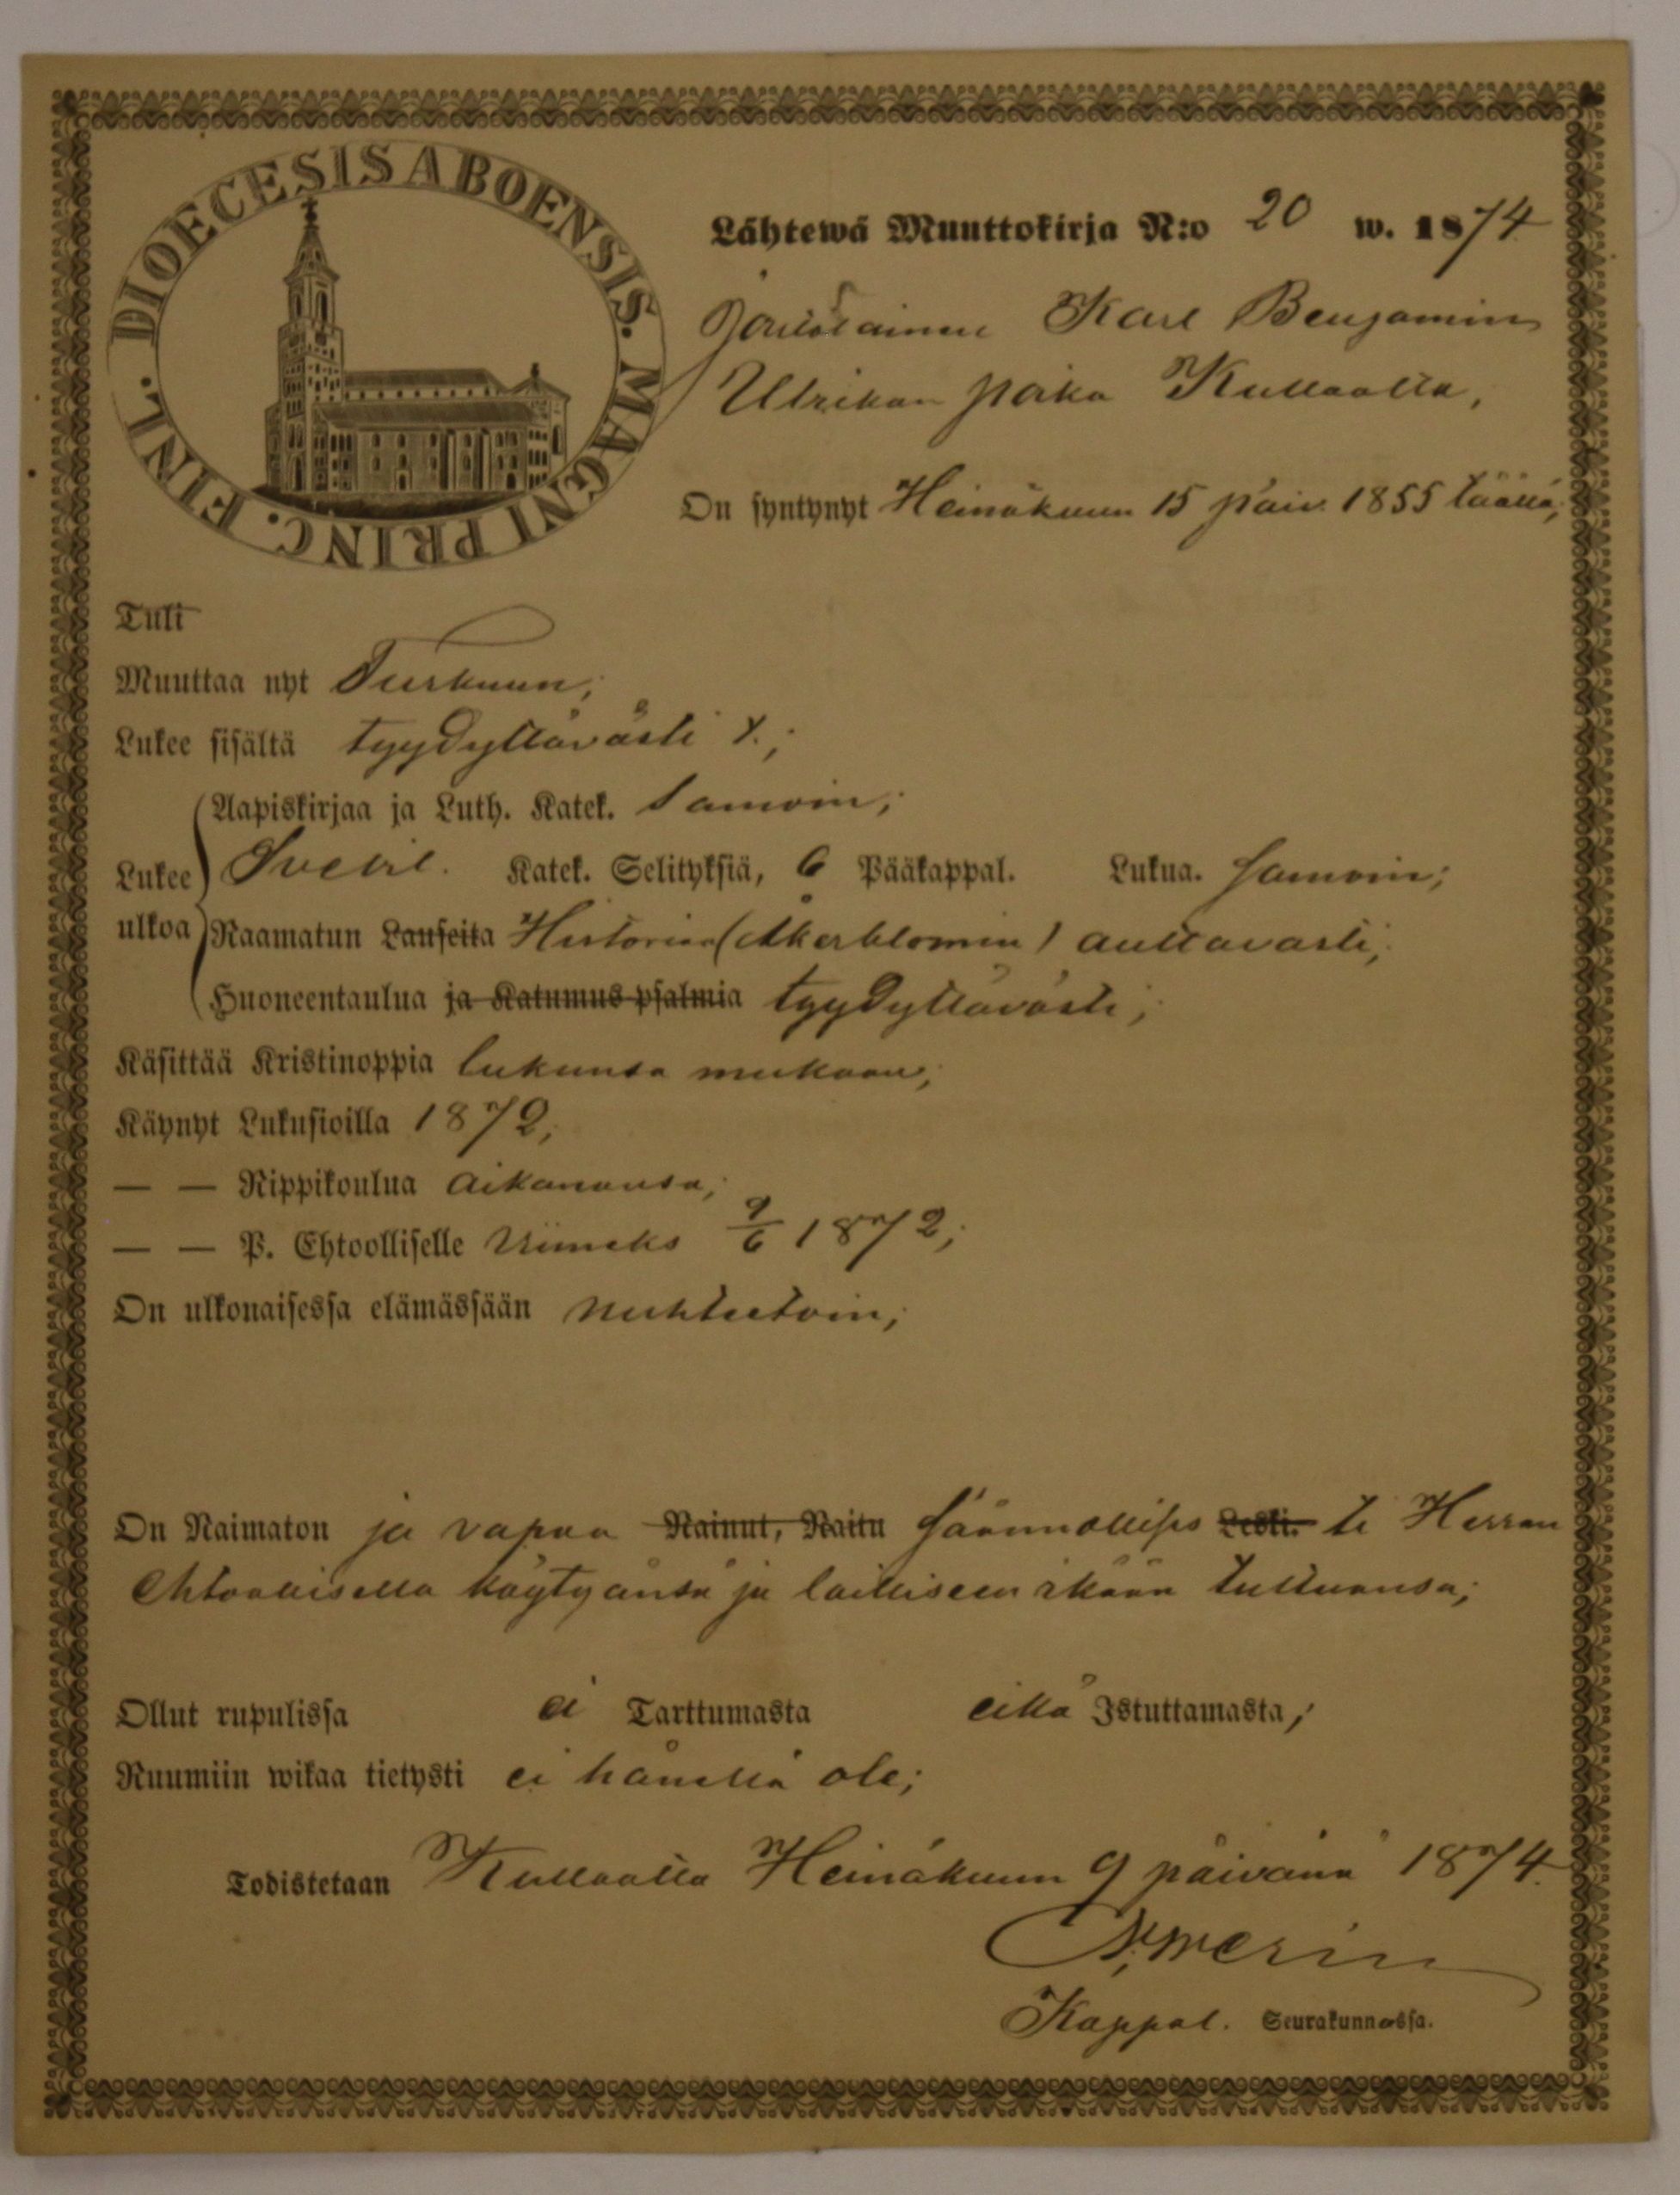 DIOECESIS ABOENSIS. MAGNI PRINC. FINL.
Lähtewä Muuttokirja N:o 20 w. 1874
Karl Benjamin
Ulrikan poika Kullaalta,
On syntynyt Heinäkuun 15 päiv. 1855 täällä;
Tuli
Muuttaa nyt Turkuun;
Lukee sisältä tyydyttävästi
Aapiskirjaa ja Luth. Katek. samoin;
Lukee ulkoa Svebil. Katek. Selityksiä, 6 Pääkappal. Lukua. samoin;
Raamatun Lauseita Historiaa (Åkerblomin) auttavasti;
Huoneentaulua ja Katumus psalmia tyydyttävästi;
Käsittää Kristinoppia lukunsa mukaan;
Käynyt Lukusioilla 1872;
— — Rippikoulua aikanansa;
— — P. Ehtoolliselle viimeks 9/6 1872;
On ulkonaisessa elämässään nuhteetoin;
On Naimaton ja vapaa Nainut, Naitu säännöllises Leski. ti Herran
Ehtoollisella käytyänsä ja lailliseen ikään tultuansa;
Ollut rupulissa ei Tarttumasta eikä Istuttamasta;
Ruumiin wikaa tietysti ei hänellä ole;
Todistetaan Kullaalla Heinäkuun 9 päivänä 1874.
Kappal. Seurakunnassa.